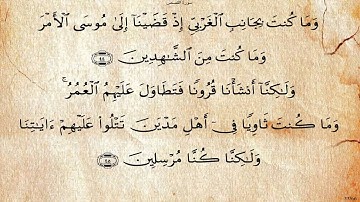 سورة القصص
وَمَا كُنتَ بِجَانِبِ الْغَرْبِيِّ إِذْ قَضَيْنَا إِلَىٰ مُوسَى الْأَمْرَ
وَمَا كُنتَ مِنَ الشَّاهِدِينَ ٤٤
وَلَٰكِنَّا أَنشَأْنَا قُرُونًا فَتَطَاوَلَ عَلَيْهِمُ الْعُمُرُ ۚ
وَمَا كُنتَ ثَاوِيًا فِي أَهْلِ مَدْيَنَ تَتْلُوا عَلَيْهِمْ ءَايَاتِنَا
وَلَٰكِنَّا كُنَّا مُرْسِلِينَ ٤٥